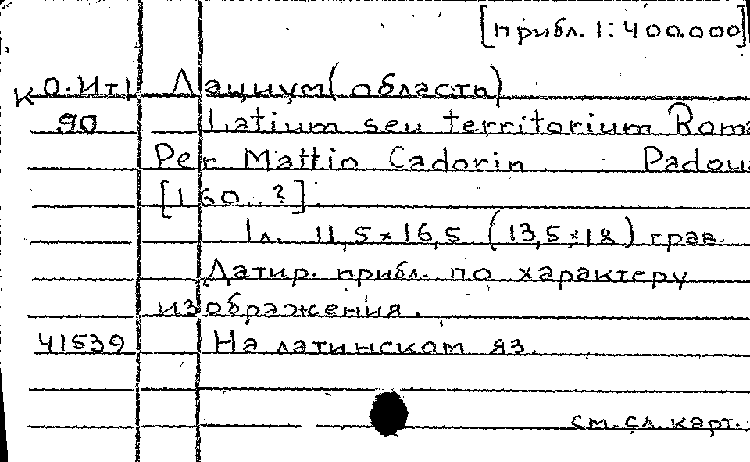 [прибл. 1:400.000]
К О.Ит1 Лациум (область)
90 Latium seu territorium Roma
Per Mattio Cadorin Padoua
[160..?].
1 л. 11,5×16,5 (13,5×18) грав.
Датир. прибл. по характеру
изображения.
41539 На латинском яз.
см. сл. карт.